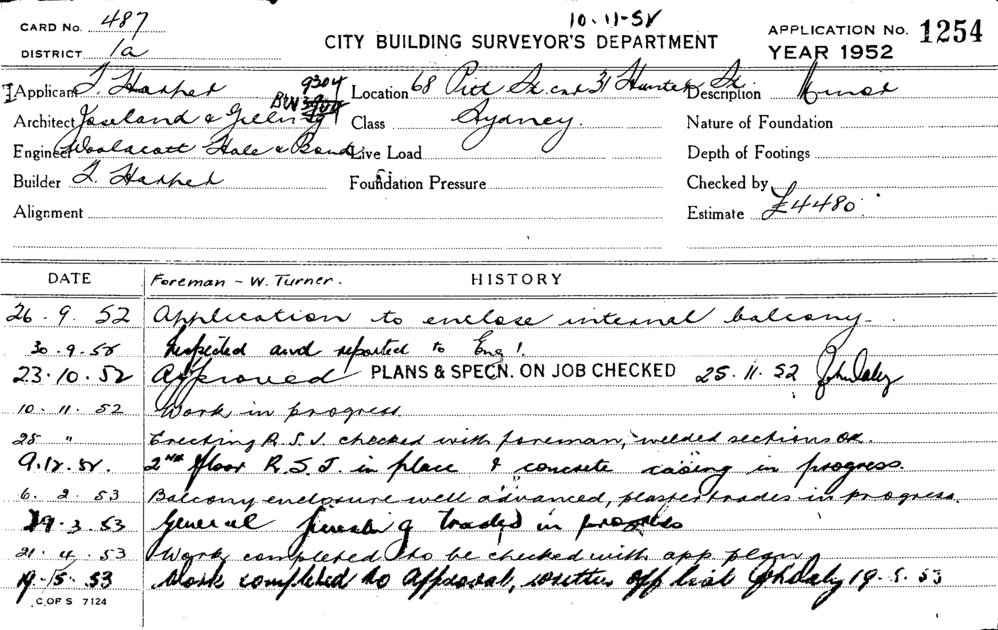 CARD No. 487
10.11-52
APPLICATION No. 1254
DISTRICT 1a
CITY BUILDING SURVEYOR'S DEPARTMENT
YEAR 1952
Applicant T. Harper
BW 9304
Location 68 Pitt St. cnr 31 Hunter St.
Description Minor
Architect Joseland & Gilling
Class Sydney.
Nature of Foundation
Engineer Woolacott Hale & Bond
Live Load
Depth of Footings
Builder T. Harper
Foundation Pressure
Checked by
Alignment
Estimate £4480
DATE
Foreman - W. Turner.
HISTORY
26.9.52 Application to enclose internal balcony.
30.9.52 Inspected and reported to Eng'.
23.10.52 Approved PLANS & SPECN. ON JOB CHECKED 25.11.52 John Daly
10.11.52 Work in progress
25 " Erecting R.S.J. checked with foreman, welded sections OK.
9.12.52. 2ND floor R.S.J. in place & concrete casing in progress.
6.2.53 Balcony enclosure well advanced, plaster trades in progress.
19.3.53 General finishing trades in progress
21.4.53 Work completed to be checked with app. plan
19.5.53 Work completed to Approval, written off list JohDaly 19.5.53
C. OF S 7124